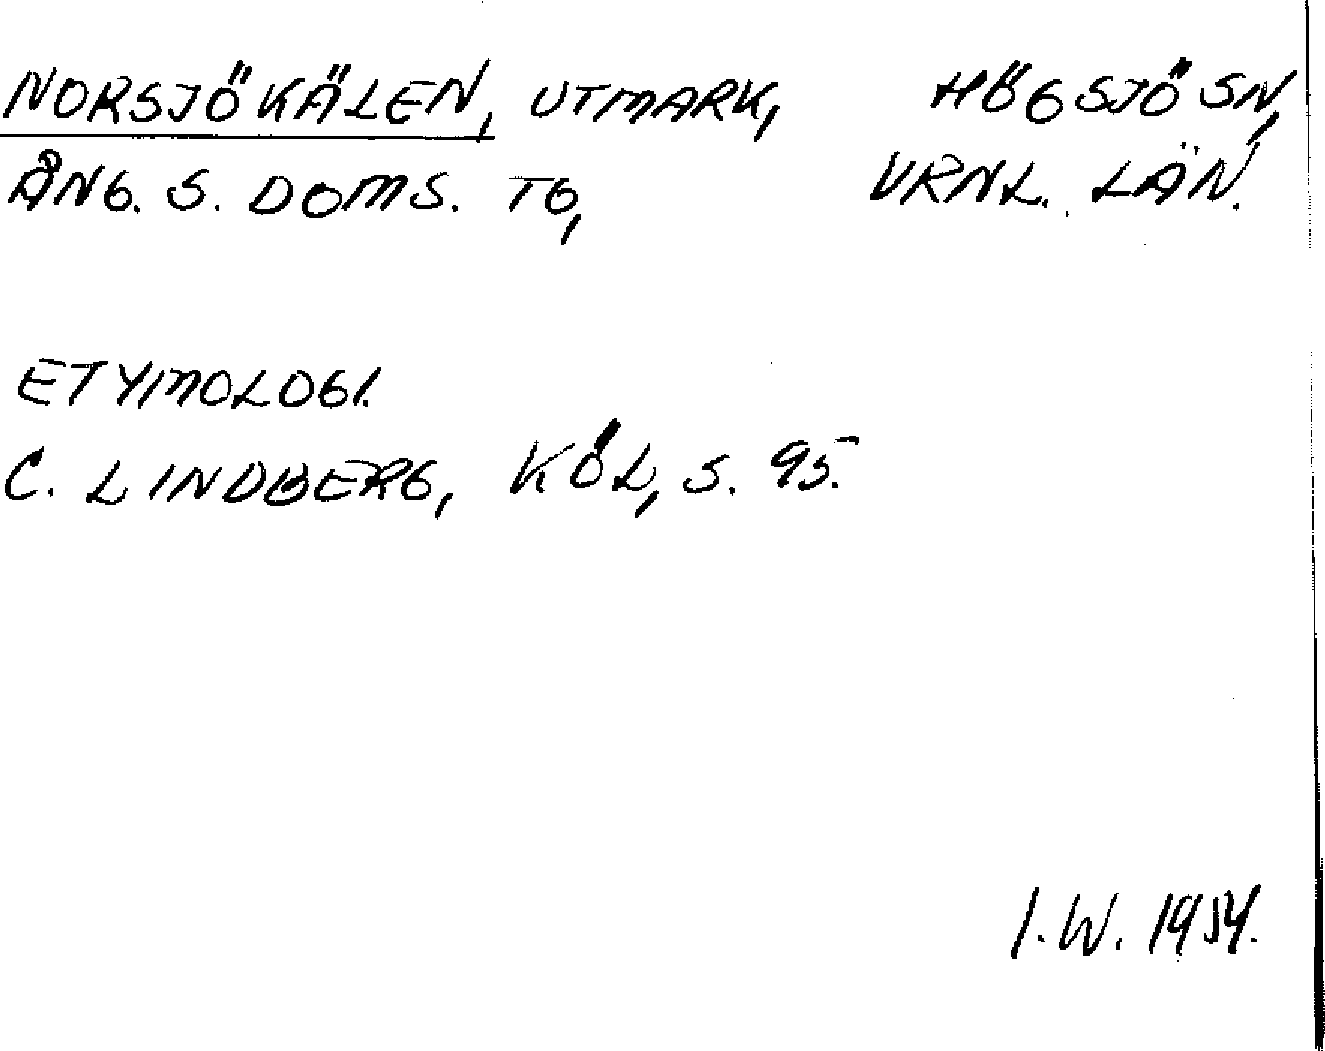 NORSJÖKÄLEN, UTMARK, HÖGSJÖ SN,
ÅNG. S. DOMS. TG, VRNL. LÄN.
ETYMOLOGI.
C. LINDBERG, KÖL, S. 95.
I. W. 1954.